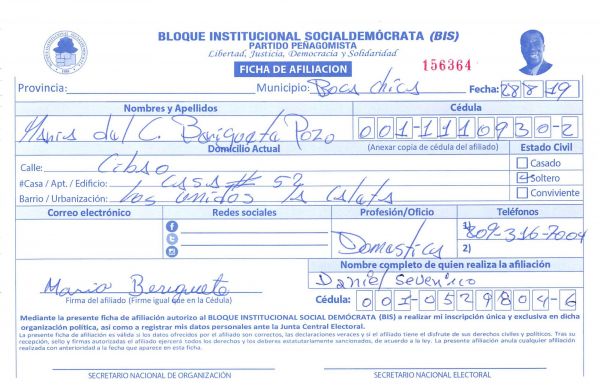 BLOQUE INSTITUCIONAL SOCIALDEMÓCRATA (BIS)
PARTIDO PEÑAGOMISTA
Libertad, Justicia, Democracia y Solidaridad
FICHA DE AFILIACION
156364
Provincia: Municipio: Boca chica Fecha: 28 8 19
Nombres y Apellidos Cédula
Maria del C. Berigueta Pozo 001-1110930-2
Domicilio Actual (Anexar copia de cédula del afiliado) Estado Civil
Calle: Casado
#Casa / Apt. / Edificio: casa # 52 Soltero
Barrio / Urbanización: los unidos la Conviviente
Correo electrónico Redes sociales Profesión/Oficio Teléfonos
Domestica 1) 809-316-7004
2)
Nombre completo de quien realiza la afiliación
Maria Berigueta Daniel Severino
Firma del afiliado (Firme igual que en la Cédula) Cédula: 001-0529804-6
Mediante la presente ficha de afiliación autorizo al BLOQUE INSTITUCIONAL SOCIAL DEMÓCRATA (BIS) a realizar mi inscripción única y exclusiva en dicha
organización política, así como a registrar mis datos personales ante la Junta Central Electoral.
La presente ficha de afiliación es válida si los datos ofrecidos por el afiliado son correctos, las declaraciones veraces y si el afiliado tiene el disfrute de sus derechos civiles y políticos. Tras su
recepción, sello y firmas autorizadas el afiliado ejercerá todos los derechos y los deberes estatutariamente sancionados, de acuerdo a la ley. La presente afiliación anula cualquier afiliación
realizada con anterioridad a la fecha que aparece en esta ficha.
SECRETARIO NACIONAL DE ORGANIZACIÓN SECRETARIO NACIONAL ELECTORAL